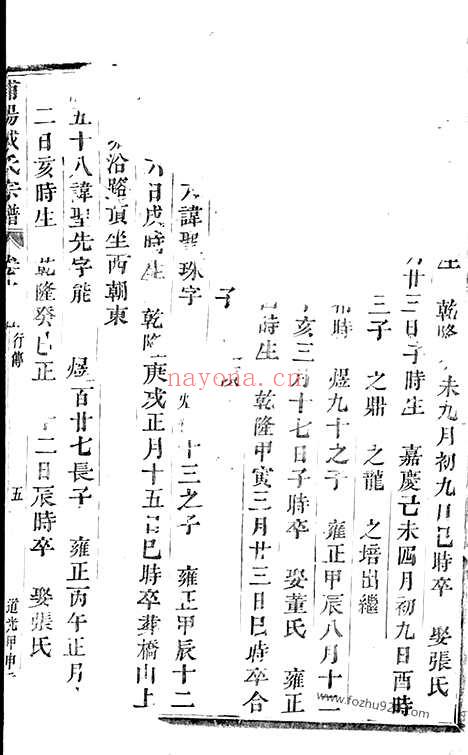 乾隆 未九月初九日巳時卒 娶張氏
廿三日子時生 嘉慶己未四月初九日酉時
三子 之鼎 之龍 之培出繼
時 煜九十之子 雍正甲辰八月十二
亥三月十七日子時卒 娶董氏 雍正
時生 乾隆甲寅三月廿三日巳時卒合
子
諱聖珠字 十三之子 雍正甲辰十二
日戌時生 乾隆庚戌正月十五日巳時卒葬橋山上
沿路頂坐西朝東
五十八諱聖先字能 煜百廿七長子 雍正丙午正月
二日亥時生 乾隆癸巳正 十二日辰時卒 娶張氏
浦陽戚氏宗譜 行傳 五 道光甲申
nayona.cn
www.fozhu920.com